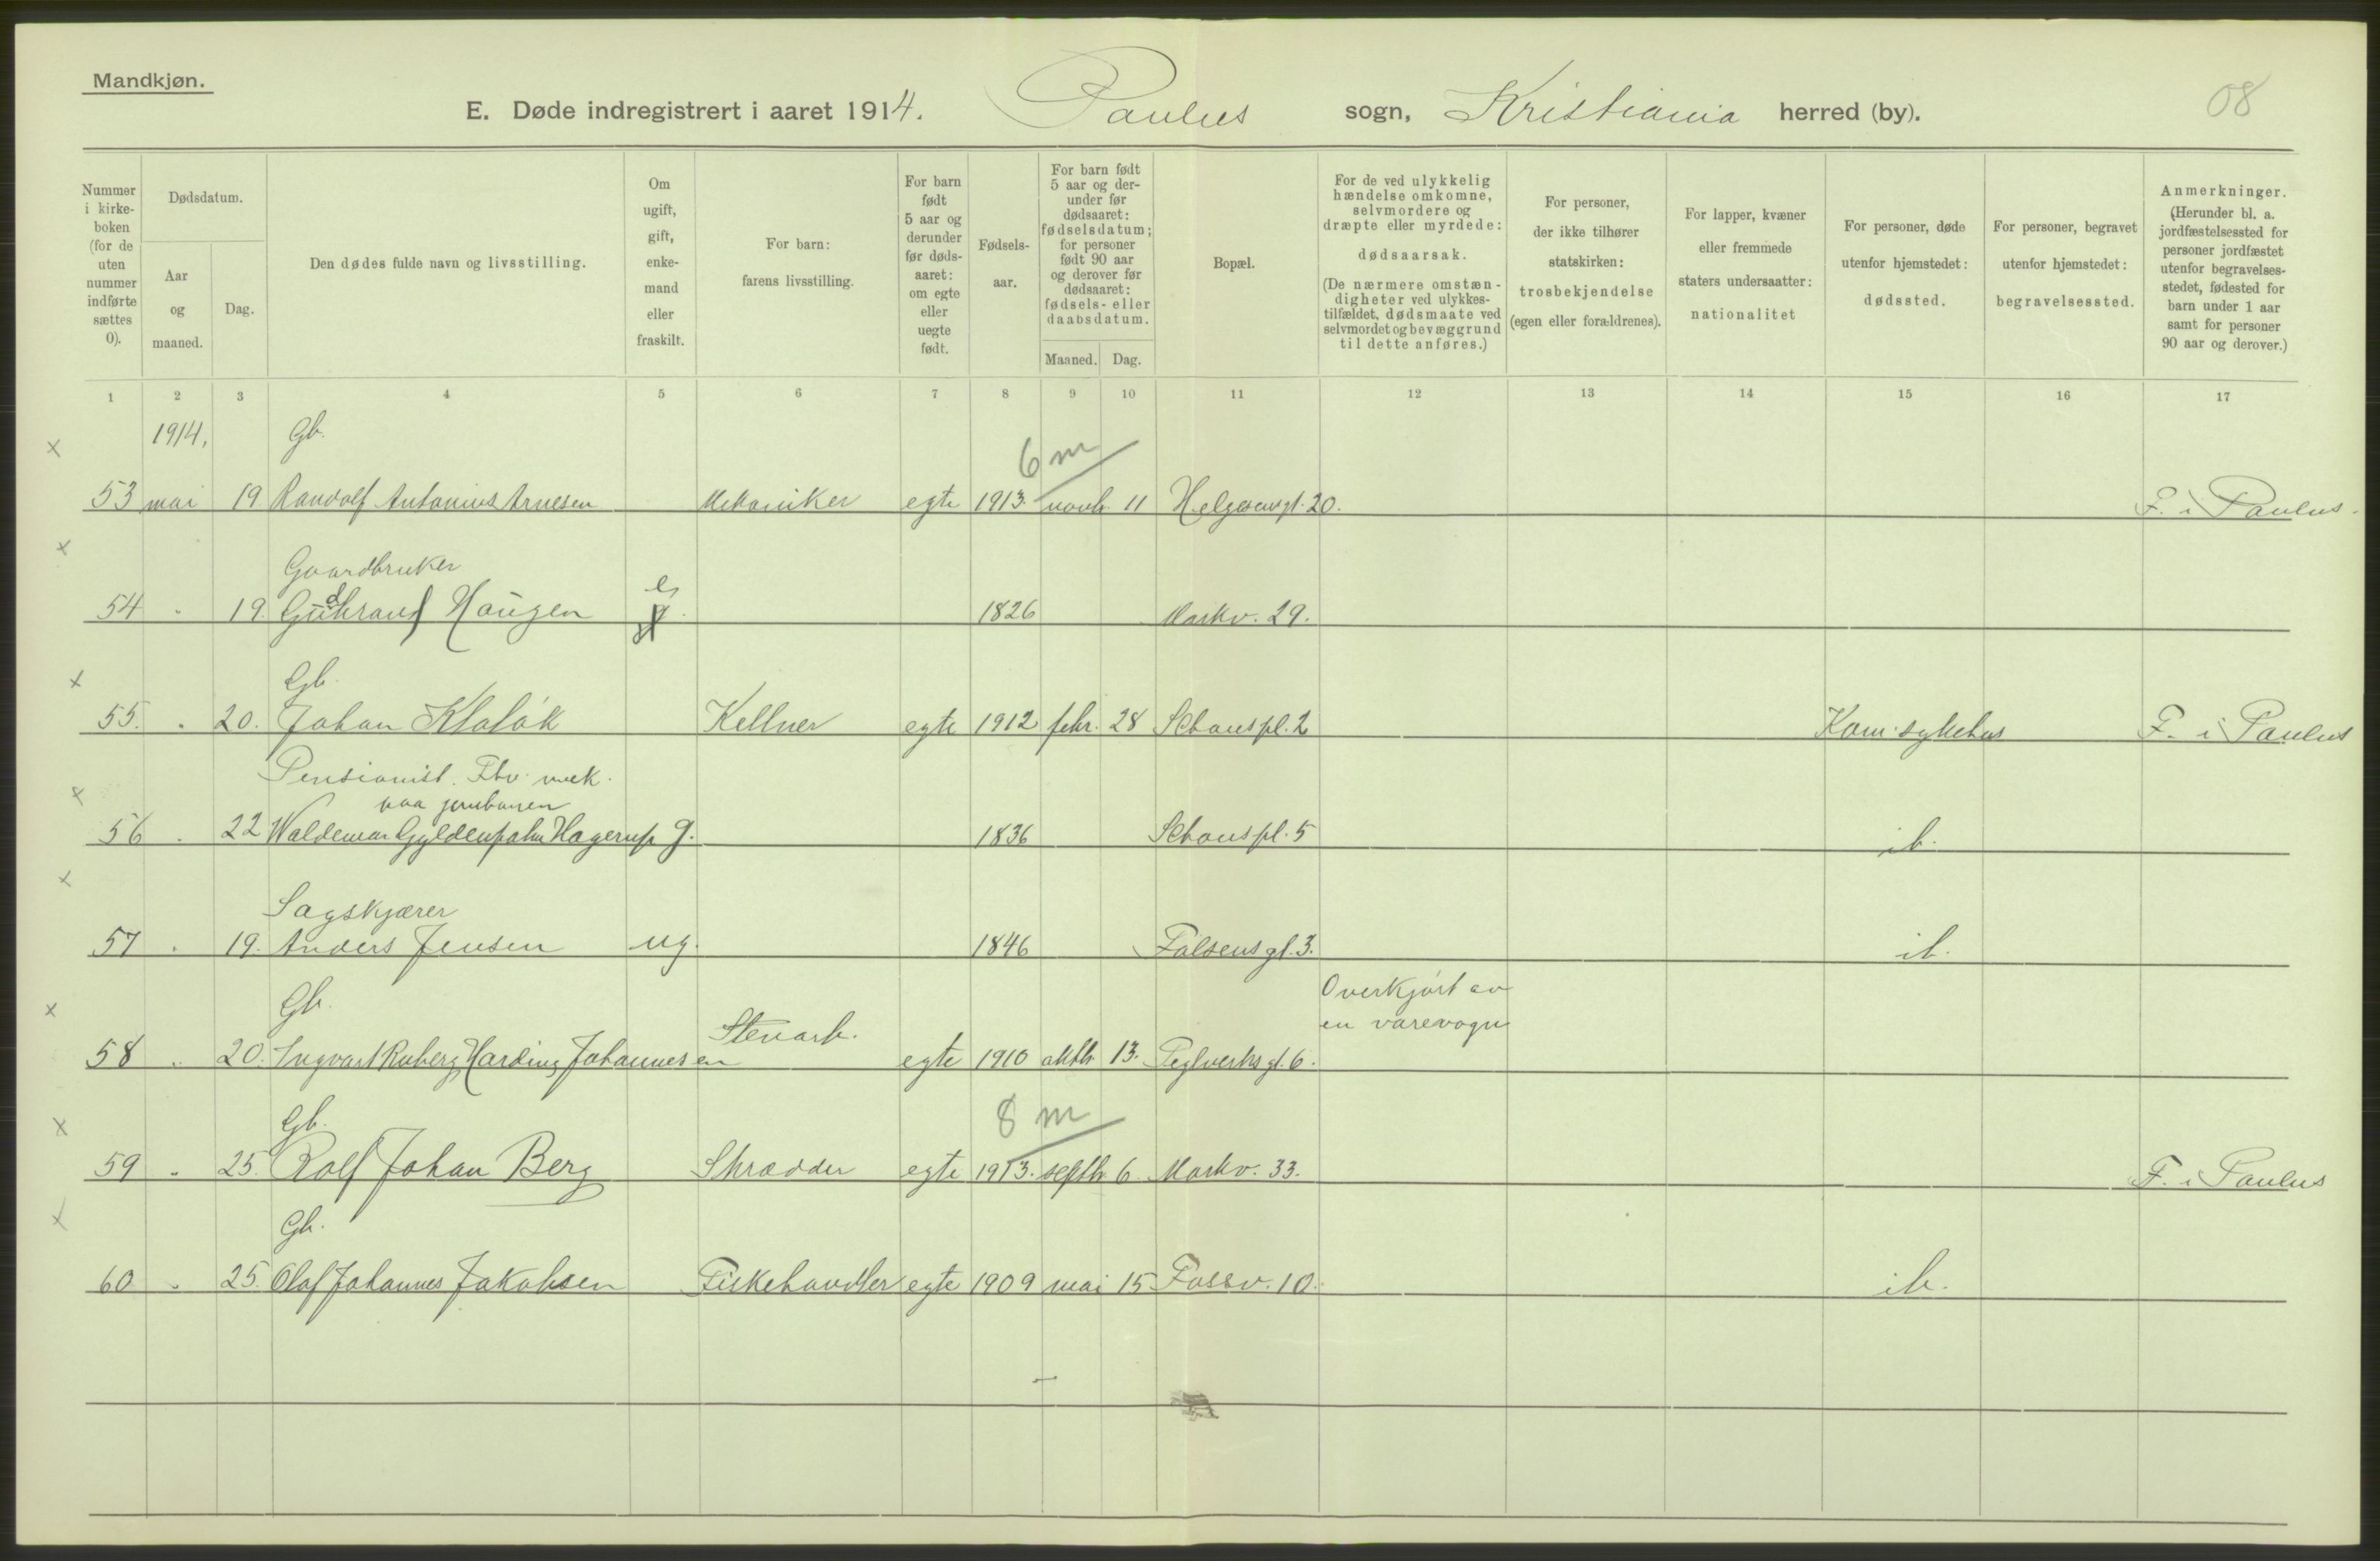 Mandkjøn.
E. Døde indregistrert i aaret 1914. Paulus sogn, Kristiania herred (by).
08
Nummer i kirkeboken (for de uten nummer indførte sættes 0).
Dødsdatum.
Aar og maaned.
Dag.
Den dødes fulde navn og livsstilling.
Om ugift, gift, enkemand eller fraskilt.
For barn: farens livsstilling.
For barn født 5 aar og derunder før dødsaaret: om egte eller uegte født.
Fødselsaar.
For barn født 5 aar og derunder før dødsaaret: fødselsdatum; for personer født 90 aar og derover før dødsaaret: fødsels- eller daabsdatum.
Maaned. Dag.
Bopæl.
For de ved ulykkelig hændelse omkomne, selvmordere og dræpte eller myrdede: dødsaarsak. (De nærmere omstændigheter ved ulykkestilfældet, dødsmaate ved selvmordet og bevæggrund til dette anføres.)
For personer, der ikke tilhører statskirken: trosbekjendelse (egen eller forældrenes).
For lapper, kvæner eller fremmede staters undersaatter: nationalitet
For personer, døde utenfor hjemstedet: dødssted.
For personer, begravet utenfor hjemstedet: begravelsessted.
Anmerkninger. (Herunder bl. a. jordfæstelsessted for personer jordfæstet utenfor begravelsesstedet, fødested for barn under 1 aar samt for personer 90 aar og derover.)
1 2 3 4 5 6 7 8 9 10 11 12 13 14 15 16 17
x 1914, Gb. 6 m
53 mai 19 Randolf Antonius Arnesen Mekaniker egte 1913 novb. 11 Helgesensgt. 20. F. i Paulus.
x Gaardbruker
54 " 19. Gudbrand Haugen e 1826 Markv. 29.
x Gb.
55. " 20. Johan Klaløk Kellner egte 1912 febr. 28 Schouspl. 2 Kom. sykehus F. i Paulus
Pensionist. Fhv. mek.
x paa jernbanen
56 " 22 Waldemar Gyldenpalm Hagerup g. 1836 Schouspl. 5 ib.
x Sagskjærer
57 " 19. Anders Jensen ug. 1846 Falsensgt. 3. ib.
x Gb. Stenarb. Overkjørt av
en varevogn
58 " 20. Ingvart Roberg Harding Johannesen egte 1910 oktb. 13. Teglverksgt. 6.
x Gb. 8 m
59 " 25. Rolf Johan Berg Skrædder egte 1913. septb. 6 Markv. 33. F. i Paulus
x Gb.
60 " 25. Olaf Johannes Jakobsen Fiskehandler egte 1909 mai 15 Fossv. 10. ib.